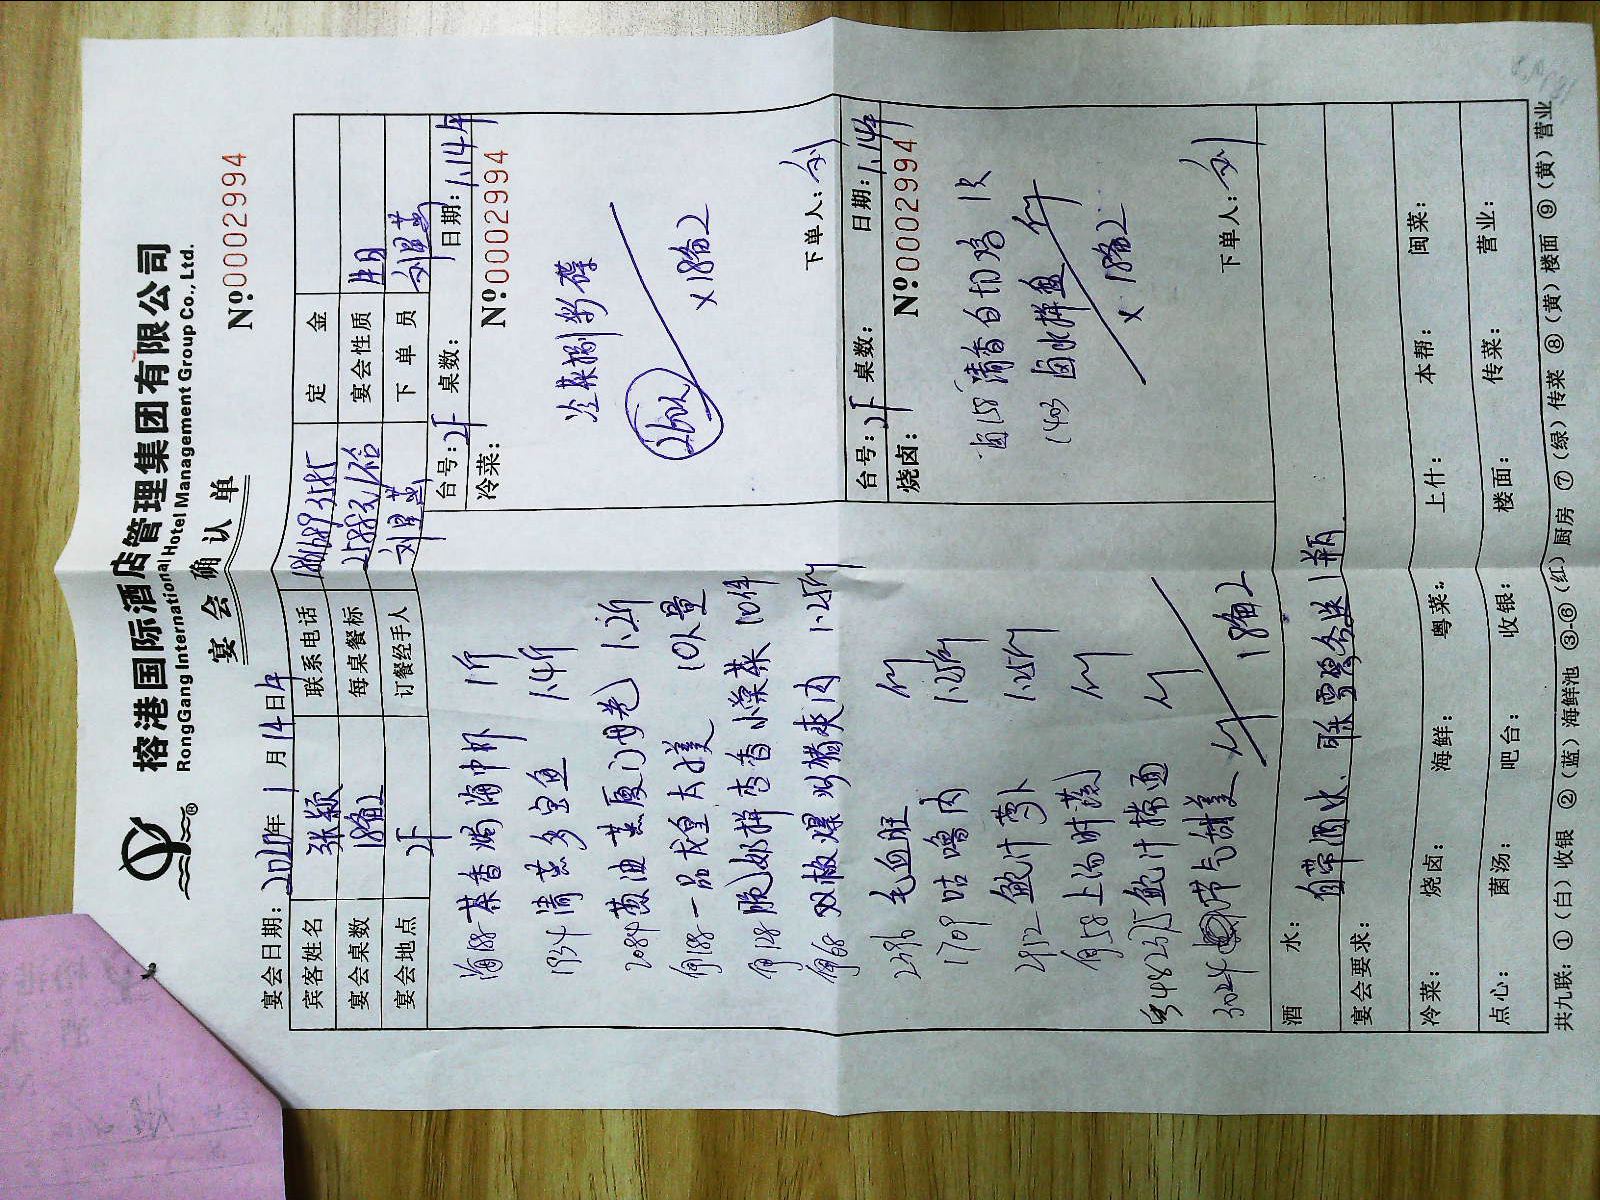 榕港国际酒店管理集团有限公司
RongGang International Hotel Management Group Co., Ltd.
宴会确认单
№:0002994
宴会日期: 年 1 月 14 日 午
宾客姓名 张颖 联系电话 定金
宴会桌数 18备2 每桌餐标 2588元/ 宴会性质
宴会地点 2F 订餐经手人 下单员
海188 茶香焗海中虾 1斤
1934 清蒸多宝鱼 1.4斤
2084 葱油蒸厦门 1.2斤
何188 一品 大 10人量
何128 奶拼杏香小棠菜 10件
何68 双椒爆炒猪爽肉 1.25斤
2396 毛血旺 例
1709 咕噜肉 1.25斤
2912 鲍汁萝卜 1.25斤
何58 上汤时蔬 例
鲍汁捞面 例
3024 节气甜美 例
18备2
台号: 2F 桌数: 日期: 1.14午
冷菜: №:0002994
冷菜捌彩碟
×18备2
下单人: 刘
台号: 2F 桌数: 日期: 1.14午
烧卤: №:0002994
卤158 清香白切鸡 1只
1403 卤水拼盘 例
×18备2
下单人: 刘
酒水: 自带酒水、 雪碧各送1瓶
宴会要求:
冷菜: 烧卤: 海鲜: 粤菜: 上什: 本帮: 闽菜:
点心: 菌汤: 吧台: 收银: 楼面: 传菜: 营业:
共九联: ①(白)收银 ②(蓝)海鲜池 ③-⑥(红)厨房 ⑦(绿)传菜 ⑧(黄)楼面 ⑨(黄)营业